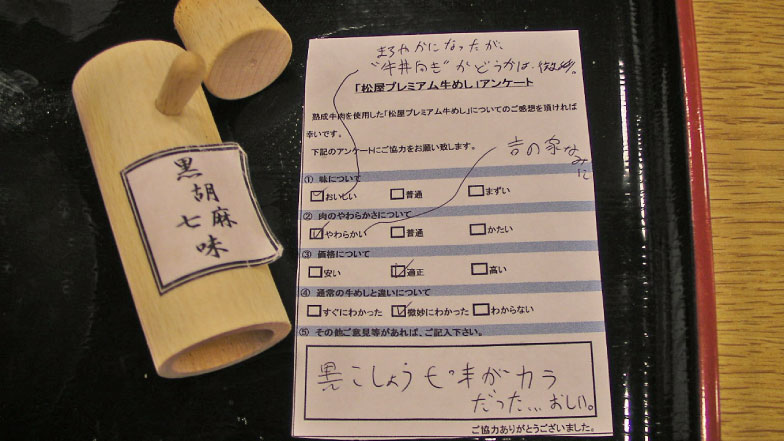 黒胡麻
七味
まろやかになったが、
"牛丼向き"かどうかは、微妙。
「松屋プレミアム牛めし」アンケート
熟成牛肉を使用した「松屋プレミアム牛めし」についてのご感想を頂ければ
幸いです。
下記のアンケートにご協力をお願い致します。
吉の家なみに
① 味について
おいしい 普通 まずい
② 肉のやわらかさについて
やわらかい 普通 かたい
③ 価格について
安い 適正 高い
④ 通常の牛めしと違いについて
すぐにわかった 微妙にわかった わからない
⑤ その他ご意見等があれば、ご記入下さい。
黒こしょう七味がカラ
だった... おしい。
ご協力ありがとうございました。